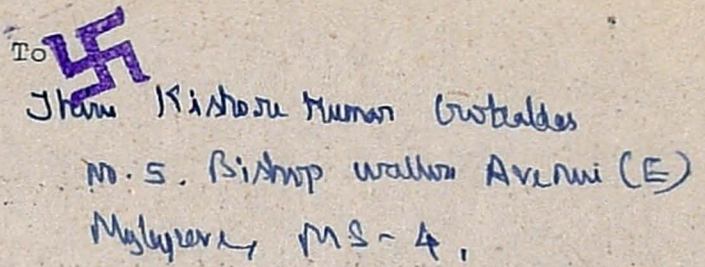 To
Thiru Kishore Kumar
No. 5. Bishop Wallers Avenue (E)
Mylapore, MS-4.